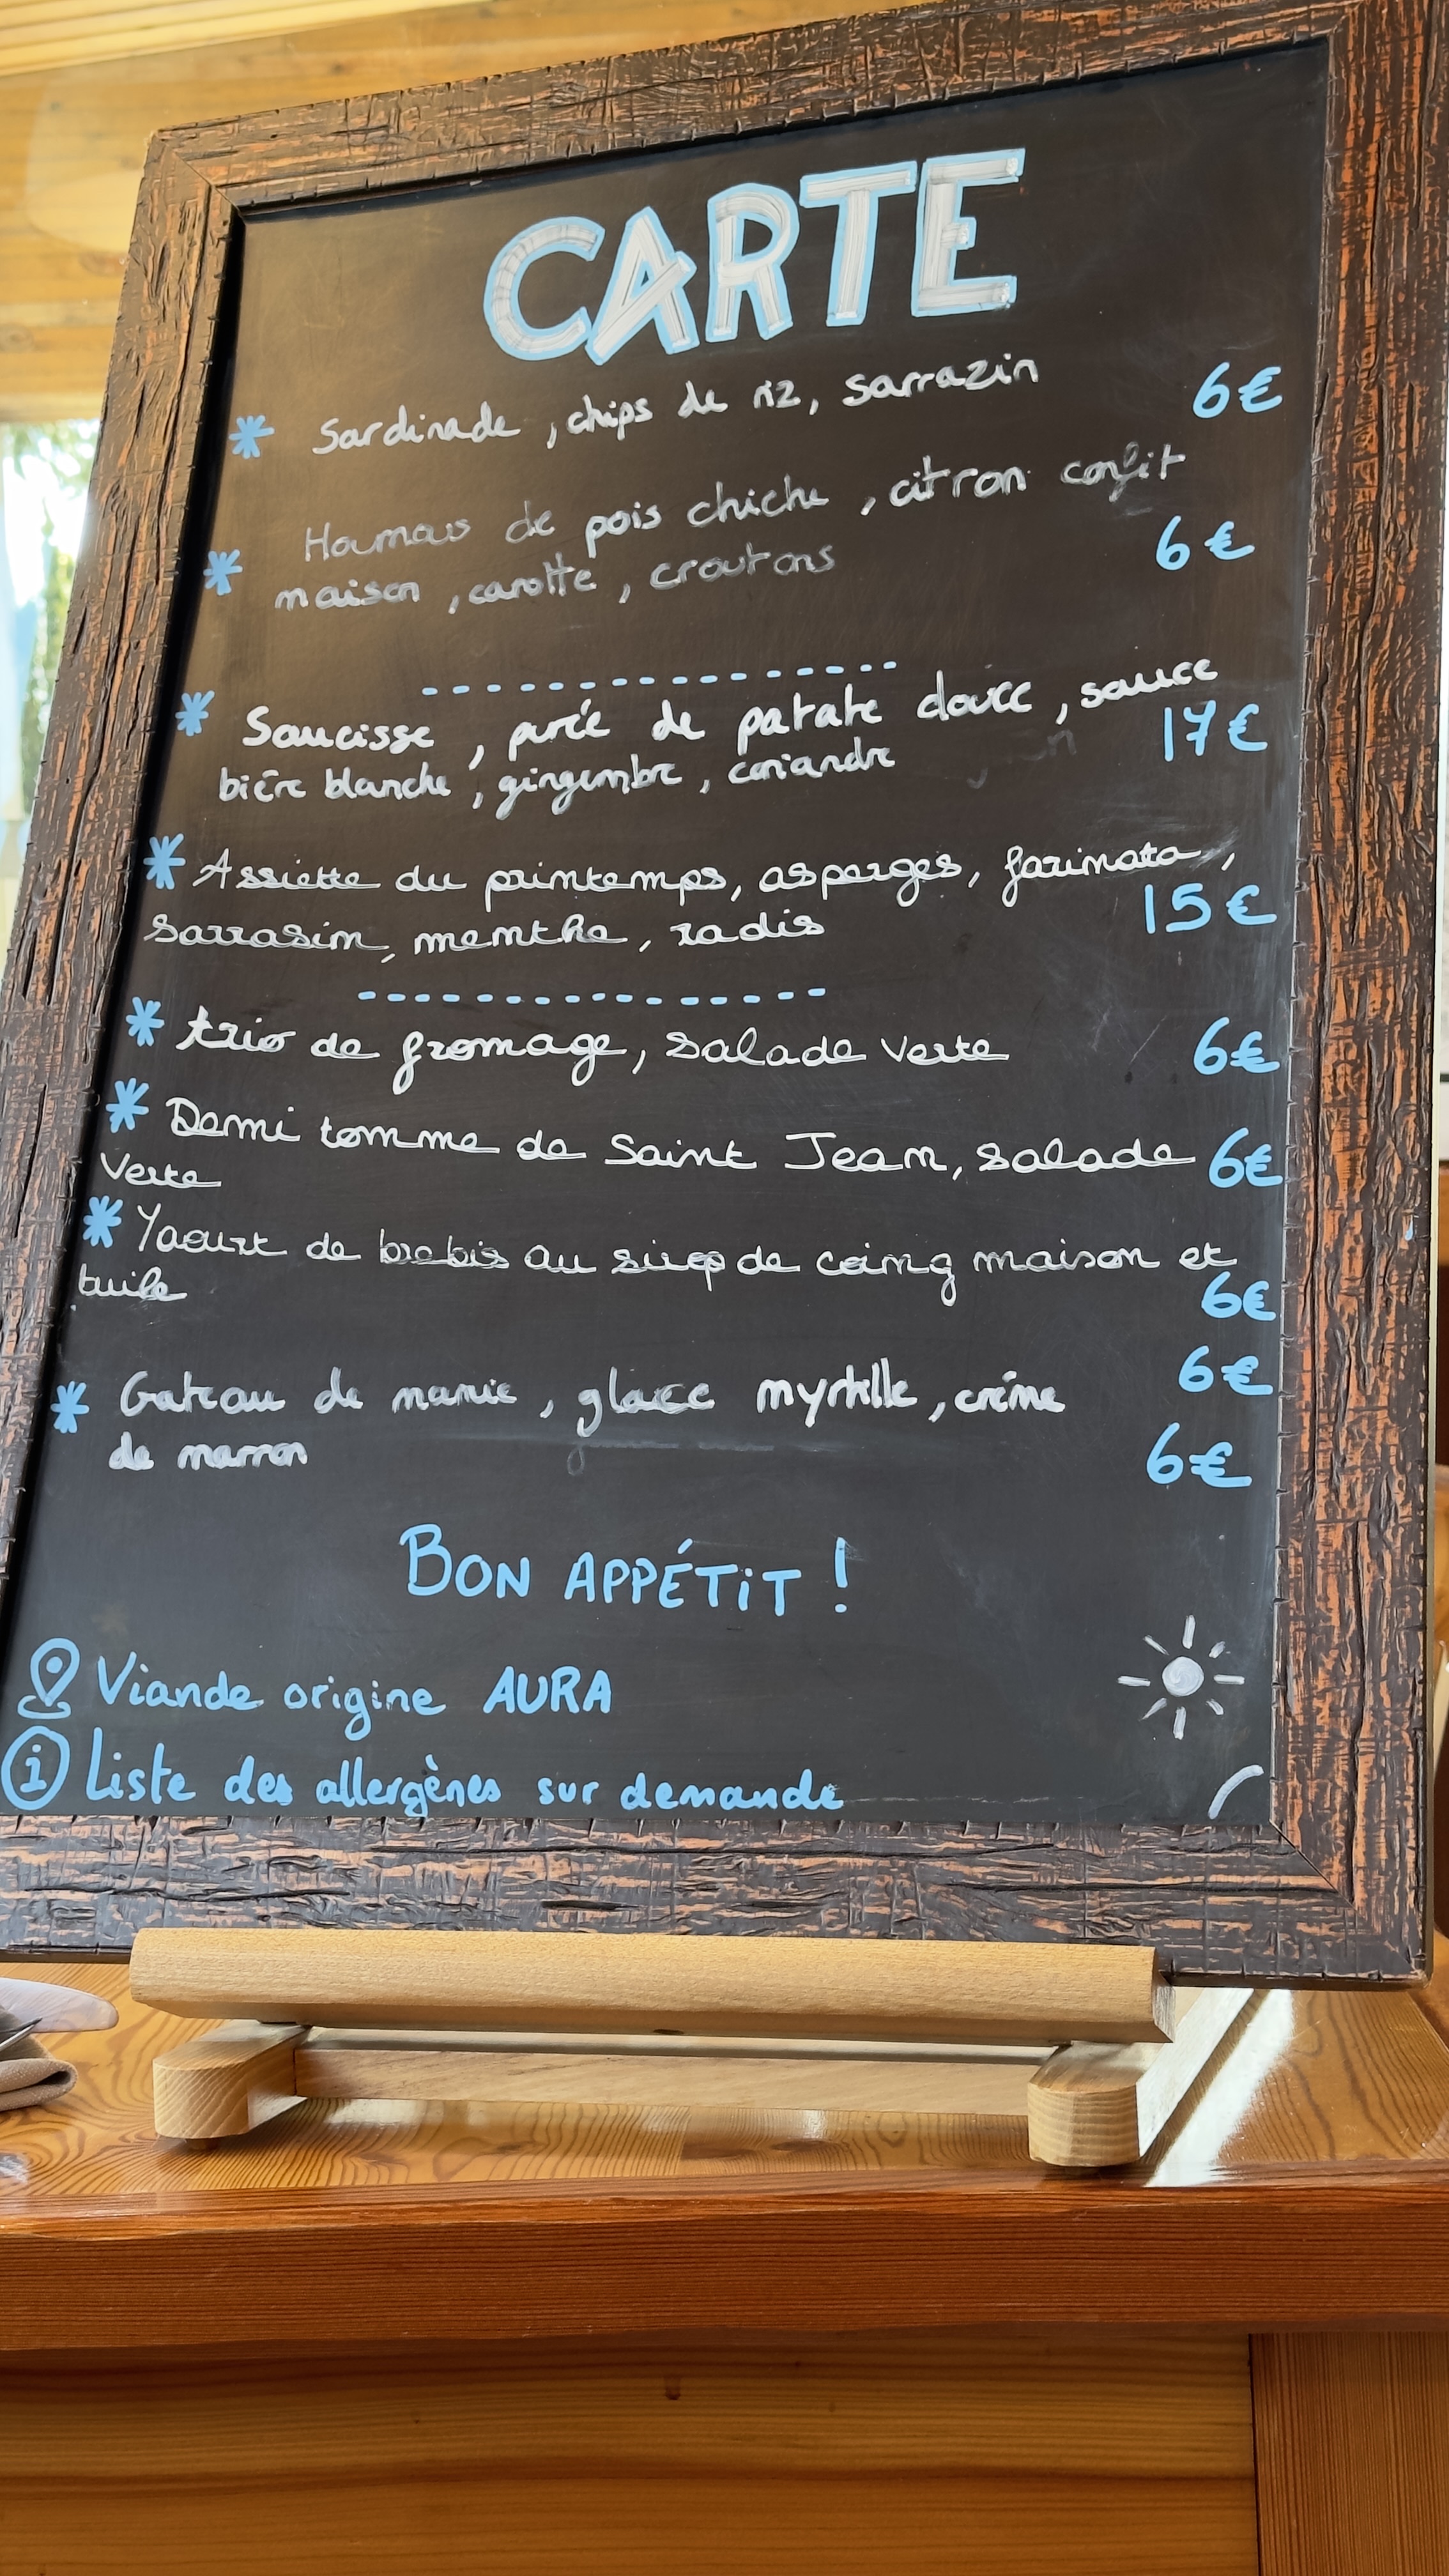 CARTE
* Sardinade, chips de riz, sarrazin 6€
* Houmous de pois chiche, citron confit
maison, carotte, croutons 6€
* Saucisse, purée de patate douce, sauce
bière blanche, gingembre, coriandre 17€
* Assiette du printemps, asperges, farinata,
sarrasin, menthe, radis 15€
* trio de fromage, salade verte 6€
* Demi tomme de Saint Jean, salade 6€
verte
* Yaourt de brebis au sirop de coing maison et
tuile 6€
* Gateau de mamie, glace myrtille, crème 6€
de marron 6€
BON APPÉTIT !
Viande origine AURA
i Liste des allergènes sur demande